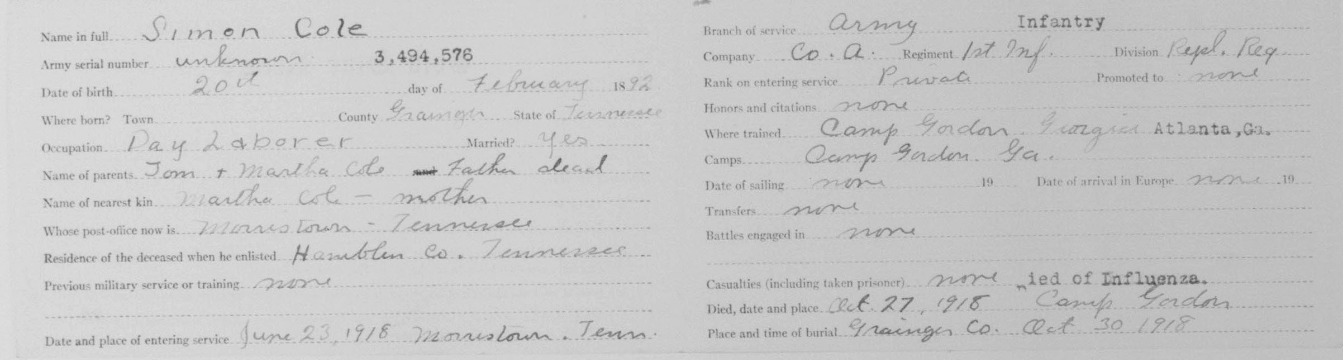 Name in full Simon Cole
Army serial number unknown 3,494,576
Date of birth 20th day of February 1892
Where born? Town County Grainger State of Tennessee
Occupation Day Laborer Married? Yes
Name of parents Tom + Martha Cole Father dead
Name of nearest kin Martha Cole - mother
Whose post-office now is Morristown - Tennessee
Residence of the deceased when he enlisted Hamblen Co. Tennessee
Previous military service or training none
Date and place of entering service June 23, 1918 Morristown. Tenn.
Branch of service Army Infantry
Company Co. A. Regiment 1st Inf. Division Repl. Reg
Rank on entering service Private Promoted to none
Honors and citations none
Where trained Camp Gordon. Georgia Atlanta, Ga.
Camps Camp Gordon. Ga.
Date of sailing none 19 Date of arrival in Europe none 19
Transfers none
Battles engaged in none
Casualties (including taken prisoner) none ied of Influenza.
Died, date and place Oct. 27, 1918 Camp Gordon
Place and time of burial Grainger Co. Oct 30 1918